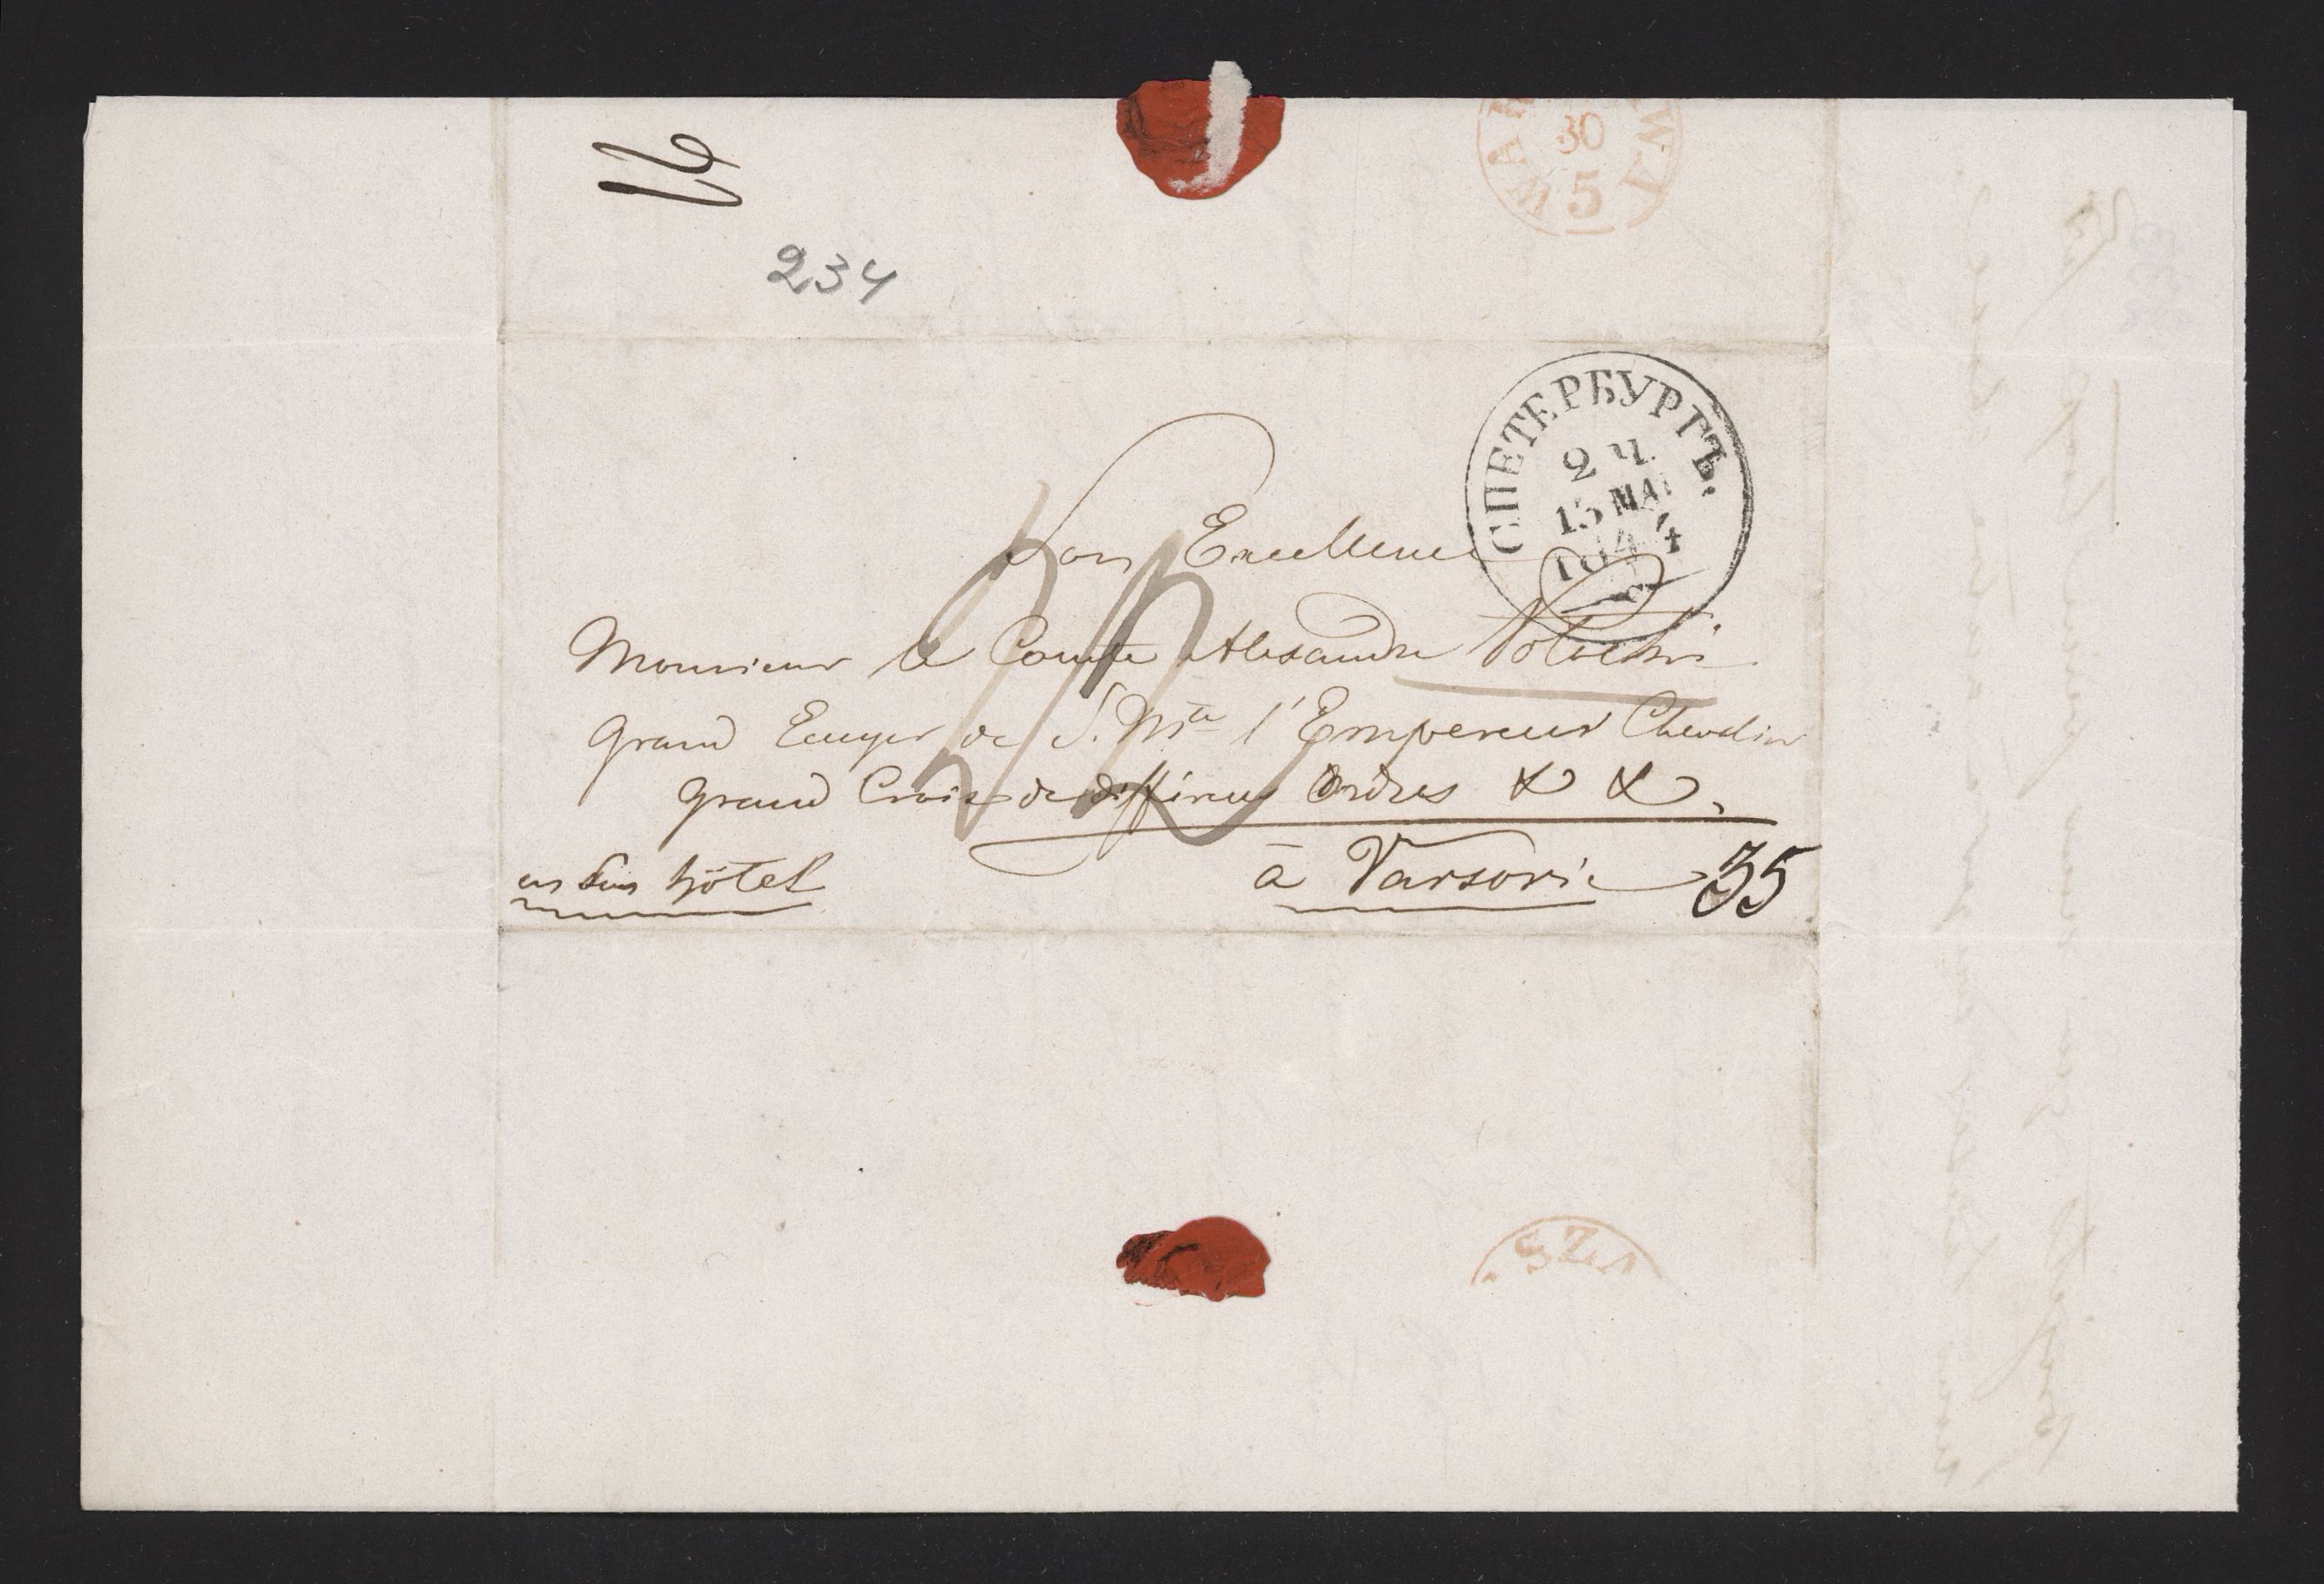 16
30
5
WARSZAWA
234
С.ПЕТЕРБУРГЪ.
2 ч.
15 МАІ
1844
Son Excellence
Monsieur le Comte Alexandre Potocki
Grand Ecuyer de S. Mté l'Empereur Chevalier
Grand Croix de différens Ordres & &.
en Son hôtel
à Varsovie
35